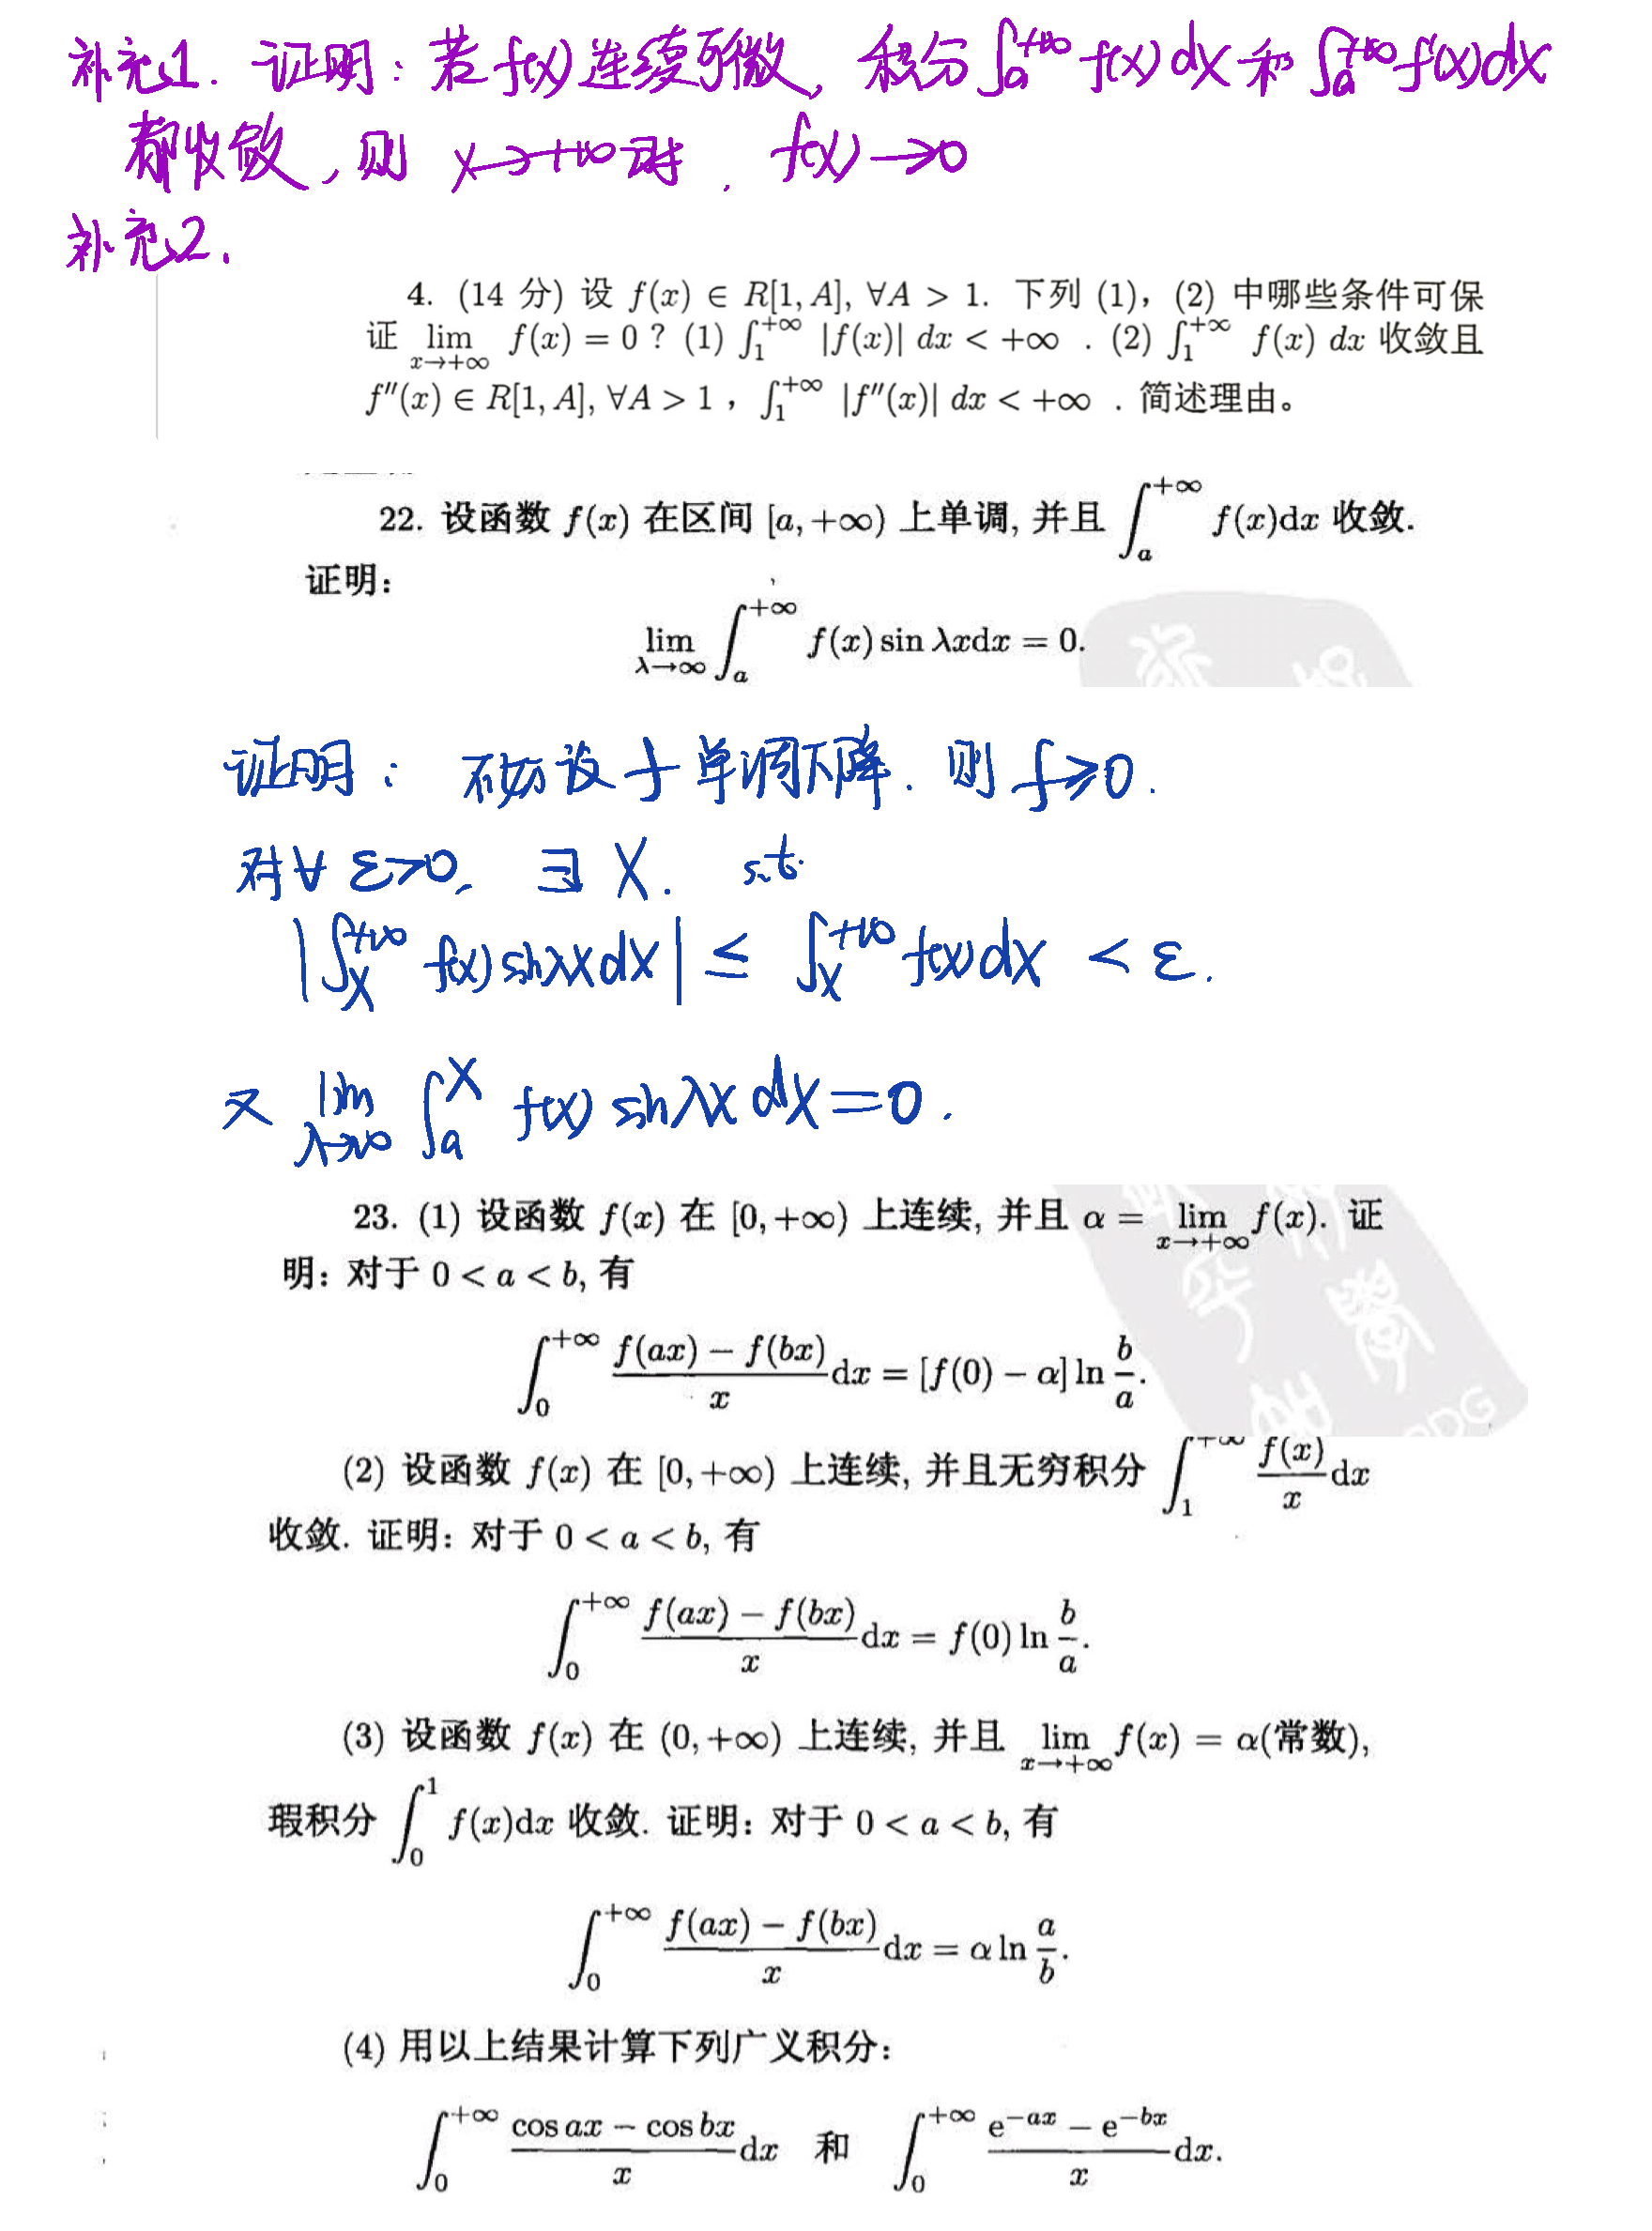 补充1. 证明：若f(x)连续可微, 积分∫_a^{+∞} f(x)dx和∫_a^{+∞} f'(x)dx
都收敛, 则 x→+∞时, f(x)→0
补充2.
4. (14 分) 设 f(x) ∈ R[1, A], ∀A > 1. 下列 (1), (2) 中哪些条件可保
证 lim_{x→+∞} f(x) = 0 ? (1) ∫_1^{+∞} |f(x)| dx < +∞ . (2) ∫_1^{+∞} f(x) dx 收敛且
f''(x) ∈ R[1, A], ∀A > 1 , ∫_1^{+∞} |f''(x)| dx < +∞ . 简述理由。
22. 设函数 f(x) 在区间 [a, +∞) 上单调, 并且 ∫_a^{+∞} f(x)dx 收敛.
证明:
lim_{λ→∞} ∫_a^{+∞} f(x) sin λxdx = 0.
证明： 不妨设f单调下降. 则 f≥0.
对∀ε>0, ∃ X. s.t.
|∫_X^{+∞} f(x) sinλx dx| ≤ ∫_X^{+∞} f(x)dx < ε.
又 lim_{λ→∞} ∫_a^X f(x) sinλx dx=0.
23. (1) 设函数 f(x) 在 [0, +∞) 上连续, 并且 α = lim_{x→+∞} f(x). 证
明: 对于 0 < a < b, 有
∫_0^{+∞} \frac{f(ax) − f(bx)}{x} dx = [f(0) − α] ln \frac{b}{a}.
(2) 设函数 f(x) 在 [0, +∞) 上连续, 并且无穷积分 ∫_1^{+∞} \frac{f(x)}{x} dx
收敛. 证明: 对于 0 < a < b, 有
∫_0^{+∞} \frac{f(ax) − f(bx)}{x} dx = f(0) ln \frac{b}{a}.
(3) 设函数 f(x) 在 (0, +∞) 上连续, 并且 lim_{x→+∞} f(x) = α(常数),
瑕积分 ∫_0^1 f(x)dx 收敛. 证明: 对于 0 < a < b, 有
∫_0^{+∞} \frac{f(ax) − f(bx)}{x} dx = α ln \frac{a}{b}.
(4) 用以上结果计算下列广义积分:
∫_0^{+∞} \frac{cos ax − cos bx}{x} dx 和 ∫_0^{+∞} \frac{e^{−ax} − e^{−bx}}{x} dx.